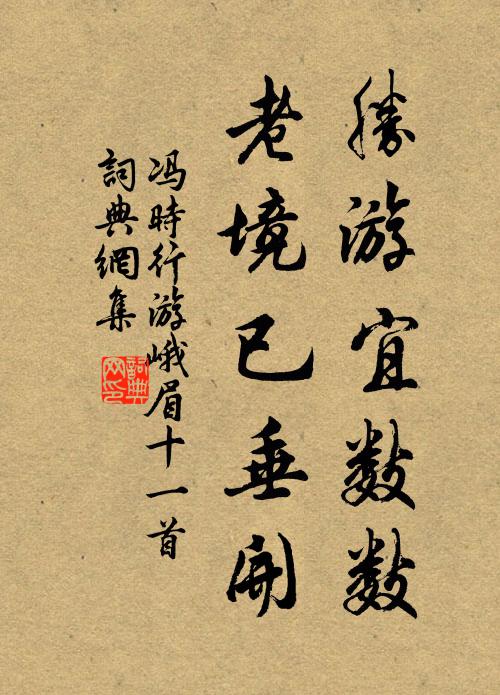 勝游宜数数
老境已垂開
冯時行游峨眉十一首
詞典網集
詞典
网印